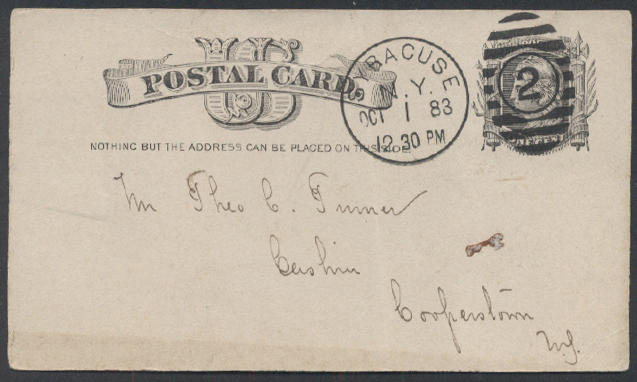 US
POSTAL CARD.
NOTHING BUT THE ADDRESS CAN BE PLACED ON THIS SIDE
SYRACUSE
N.Y.
OCT 1 83
12 30 PM
2
Mr Theo C. Turner
Cashier
Cooperstown
N.Y.